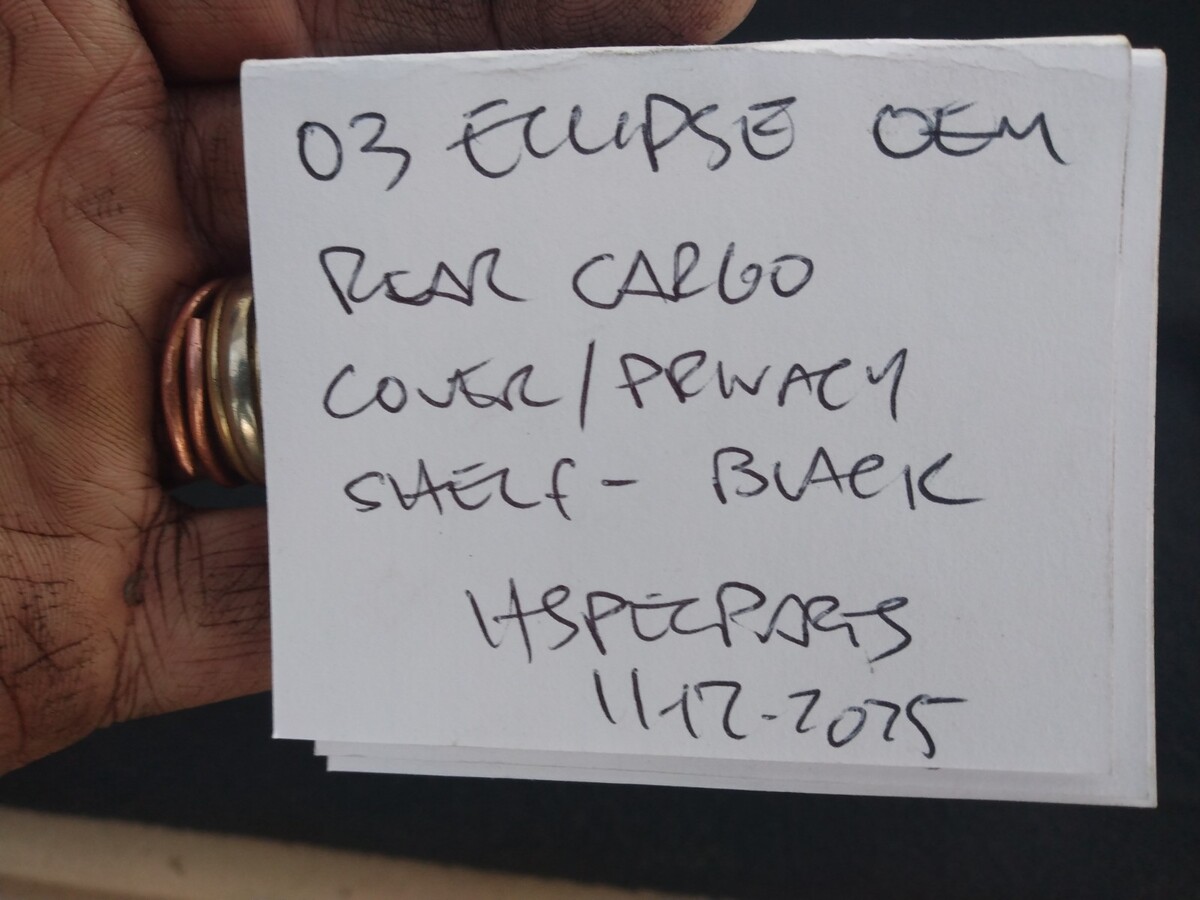 03 ECLIPSE OEM
REAR CARGO
COVER/PRIVACY
SHELF- BLACK
HSPECPARTS
11-12-2025